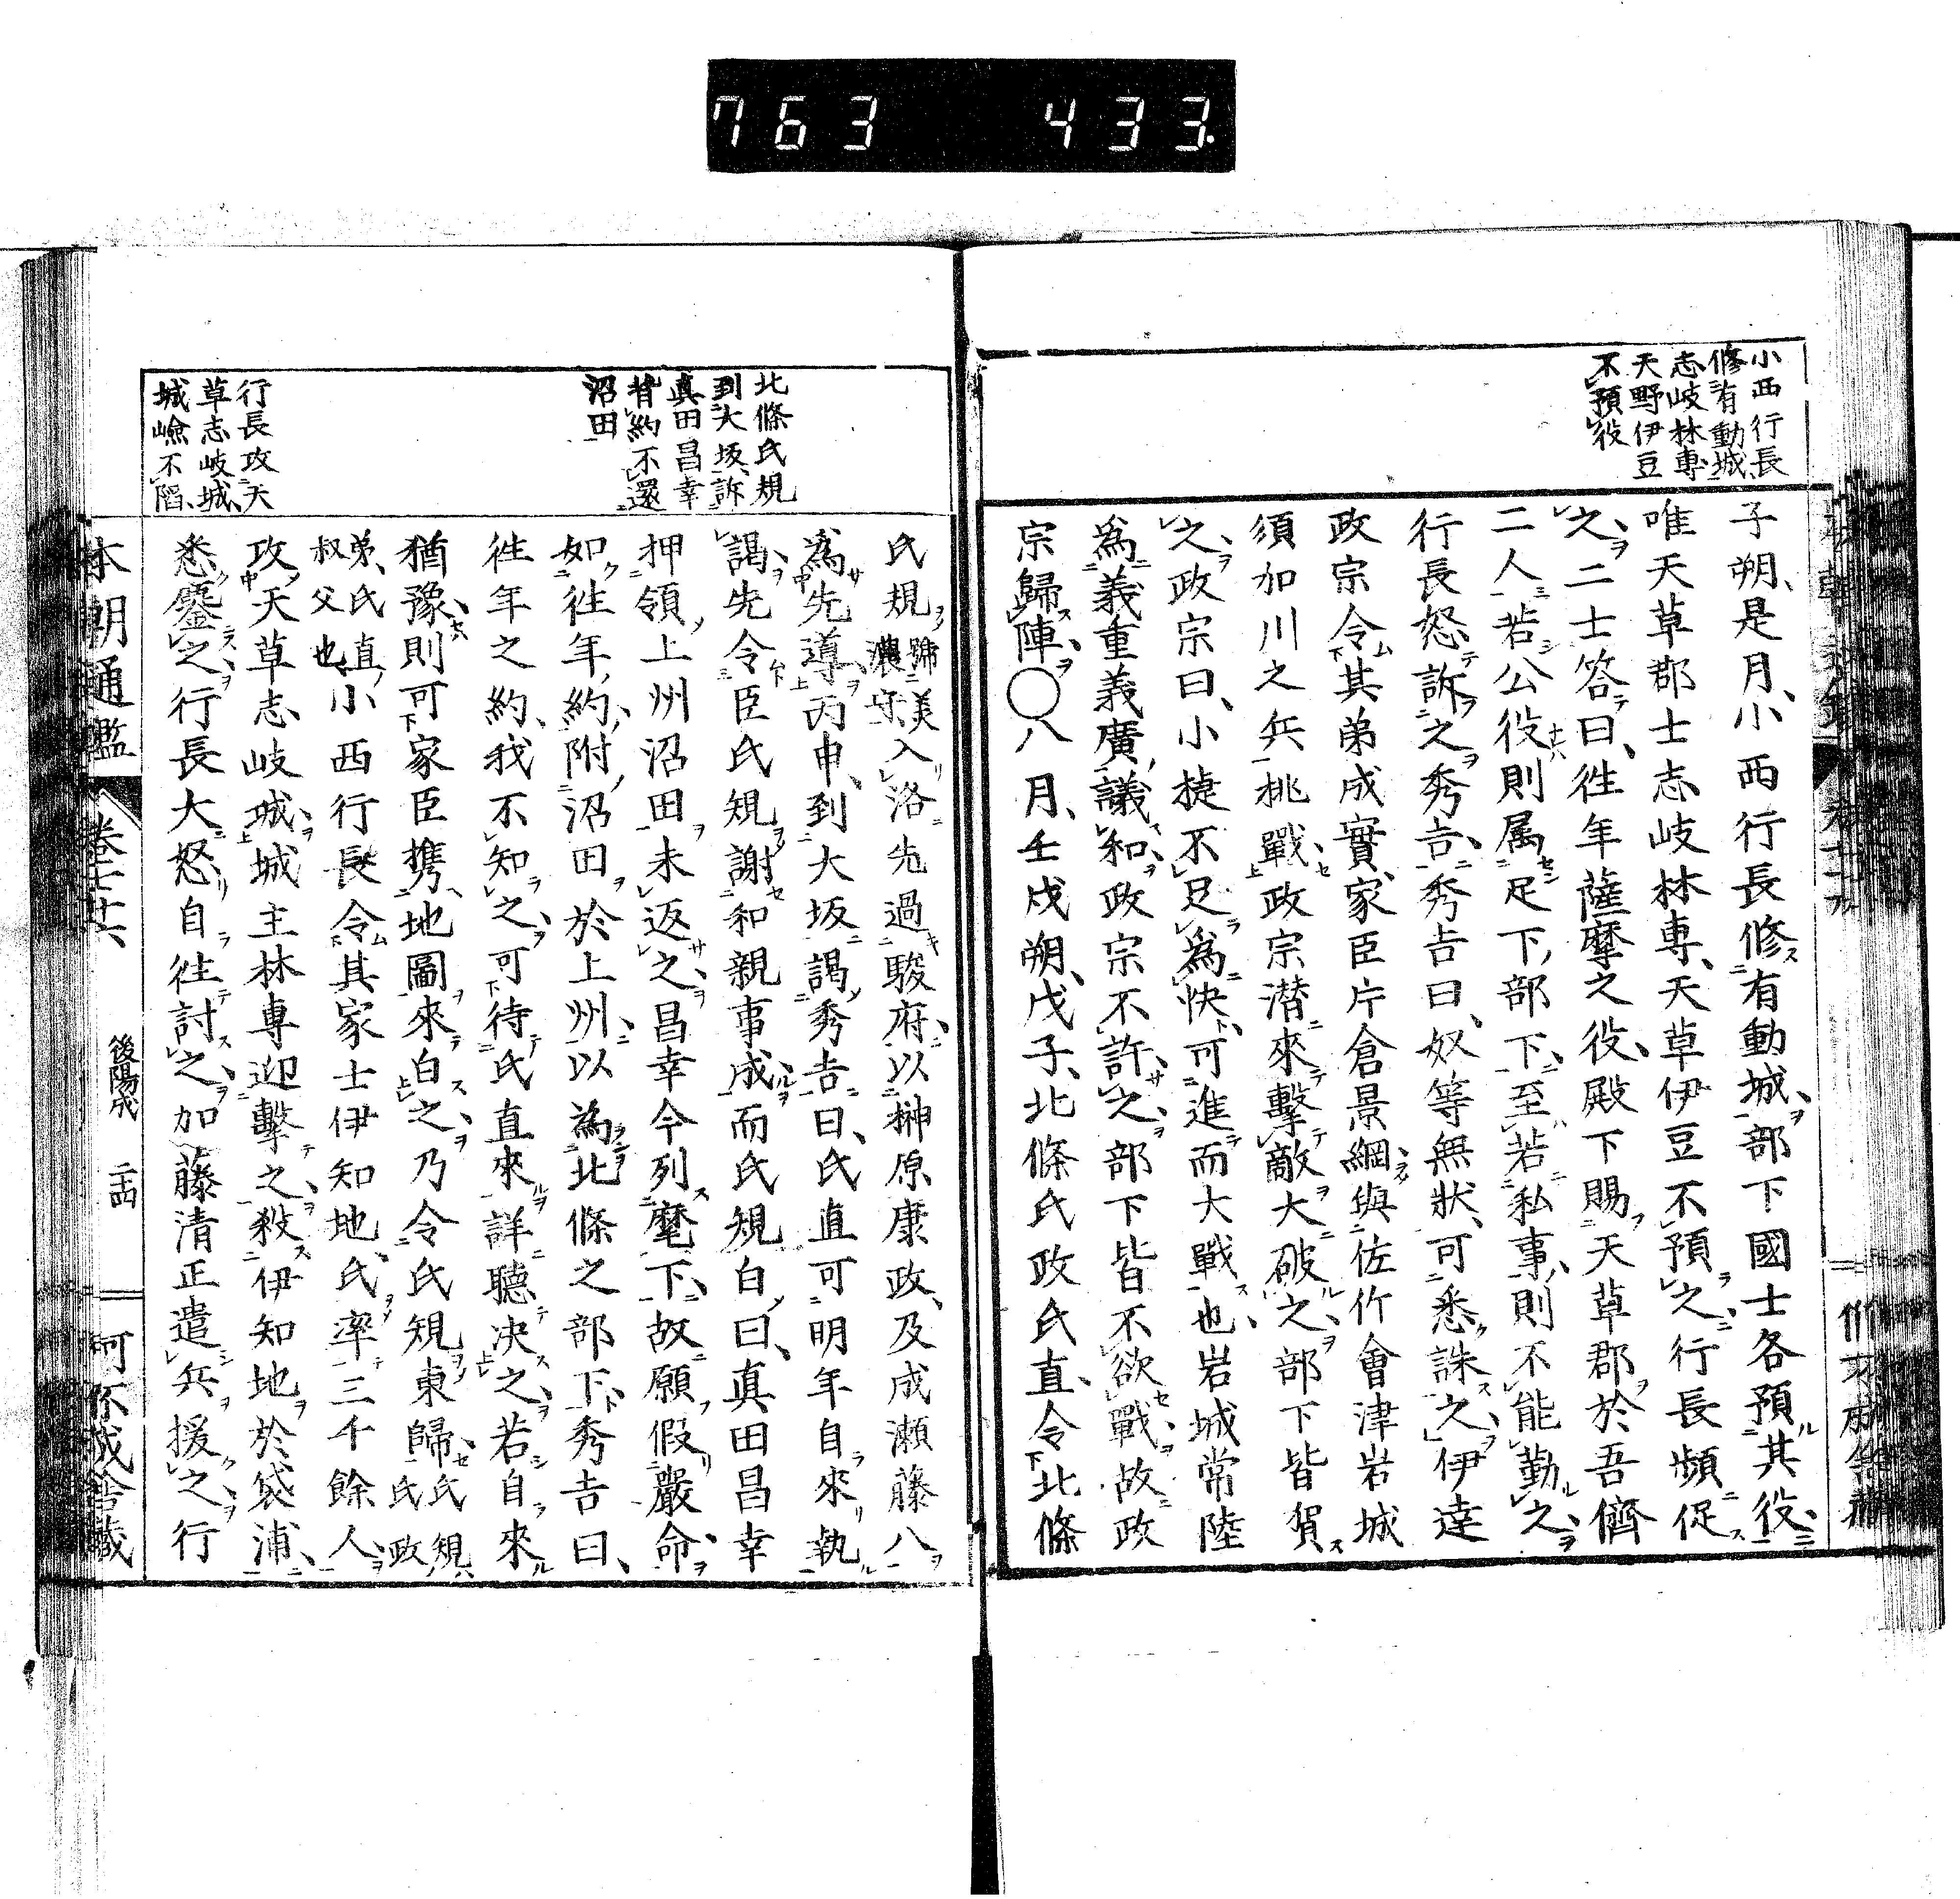 763 433
小西行長
修有動城
志岐林專
天野伊豆
不預役
子朔是月小西行長修有動城部下國士各預其役
唯天草郡士志岐林專天草伊豆不預之行長頻促
之二士答曰徃年薩摩之役殿下賜天草郡於吾儕
二人若公役則属足下部下至若私事則不能勤之
行長怒訴之秀吉秀吉曰奴等無狀可悉誅之伊達
政宗令其弟成實家臣片倉景綱與佐竹會津岩城
須加川之兵挑戰政宗潜來擊敵大破之部下皆賀
之政宗曰小捷不足為快可進而大戰也岩城常陸
為義重義廣議和政宗不許之部下皆不欲戰故政
宗歸陣〇八月壬戌朔戊子北條氏政氏直令北條
北條氏規
到大坂訴
眞田昌幸
背約不還
沼田
行長攻天
草志岐城
城嶮不陷
氏規號美濃守入洛先過駿府以榊原康政及成瀬藤八
為先導丙申到大坂謁秀吉曰氏直可明年自來執
謁先令臣氏規謝和親事成而氏規白曰眞田昌幸
押領上州沼田未返之昌幸今列麾下故願假嚴命
如徃年約附沼田於上州以為北條之部下秀吉曰
徃年之約我不知之可待氏直來詳聽决之若自來
猶豫則可家臣携地圖來白之乃令氏規東歸氏規氏政
弟氏直叔父也小西行長令其家士伊知地氏率三千餘人
攻天草志岐城城主林專迎擊之殺伊知地於袋浦
悉鏖之行長大怒自徃討之加藤清正遣兵援之行
本朝通鑑 卷七十六 後陽成 二四